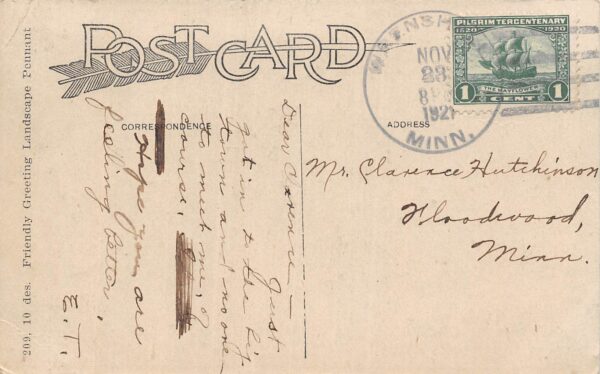 POST CARD
CORRESPONDENCE
ADDRESS
PILGRIM TERCENTENARY
1620 1920
THE MAYFLOWER
1 CENT 1
NOV
23
8
1921
MINN.
Mr. Clarence Hutchinson
Floodwood,
Minn.
Dear Clarence—
Just
got in to the big
town and no one
to meet me, of
course.
Hope you are
feeling better.
E.T.
209, 10 des. Friendly Greeting Landscape Pennant